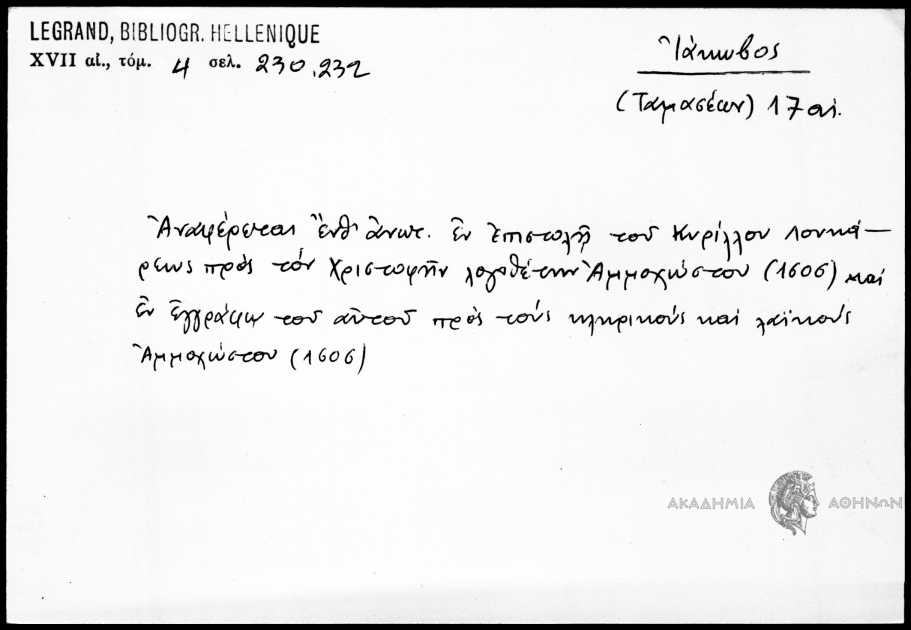 LEGRAND, BIBLIOGR. HELLENIQUE
XVII αἰ., τόμ. 4 σελ. 230, 232
Ἰάκωβος
(Ταμασέων) 17 αἰ.
Ἀναφέρεται ἔνθ' ἀνωτ. ἐν ἐπιστολῇ τοῦ Κυρίλλου Λουκά-
ρεως πρὸς τὸν Χριστοφῆν λογοθέτην Ἀμμοχώστου (1606) καὶ
ἐν ἐγγράφῳ τοῦ αὐτοῦ πρὸς τοὺς κληρικοὺς καὶ λαϊκοὺς
Ἀμμοχώστου (1606)
ΑΚΑΔΗΜΙΑ ΑΘΗΝΩΝ